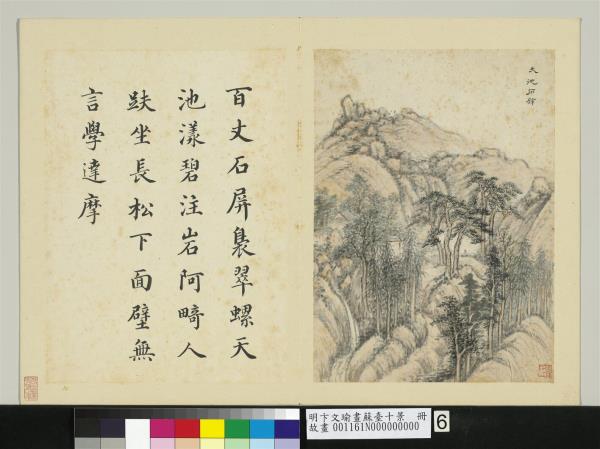 天池石壁
百丈石屏裊翠螺天
池漾碧注岩阿畸人
趺坐長松下面壁無
言學達摩
明卞文瑜畫蘇臺十景 冊
故畫 001161N000000000
6